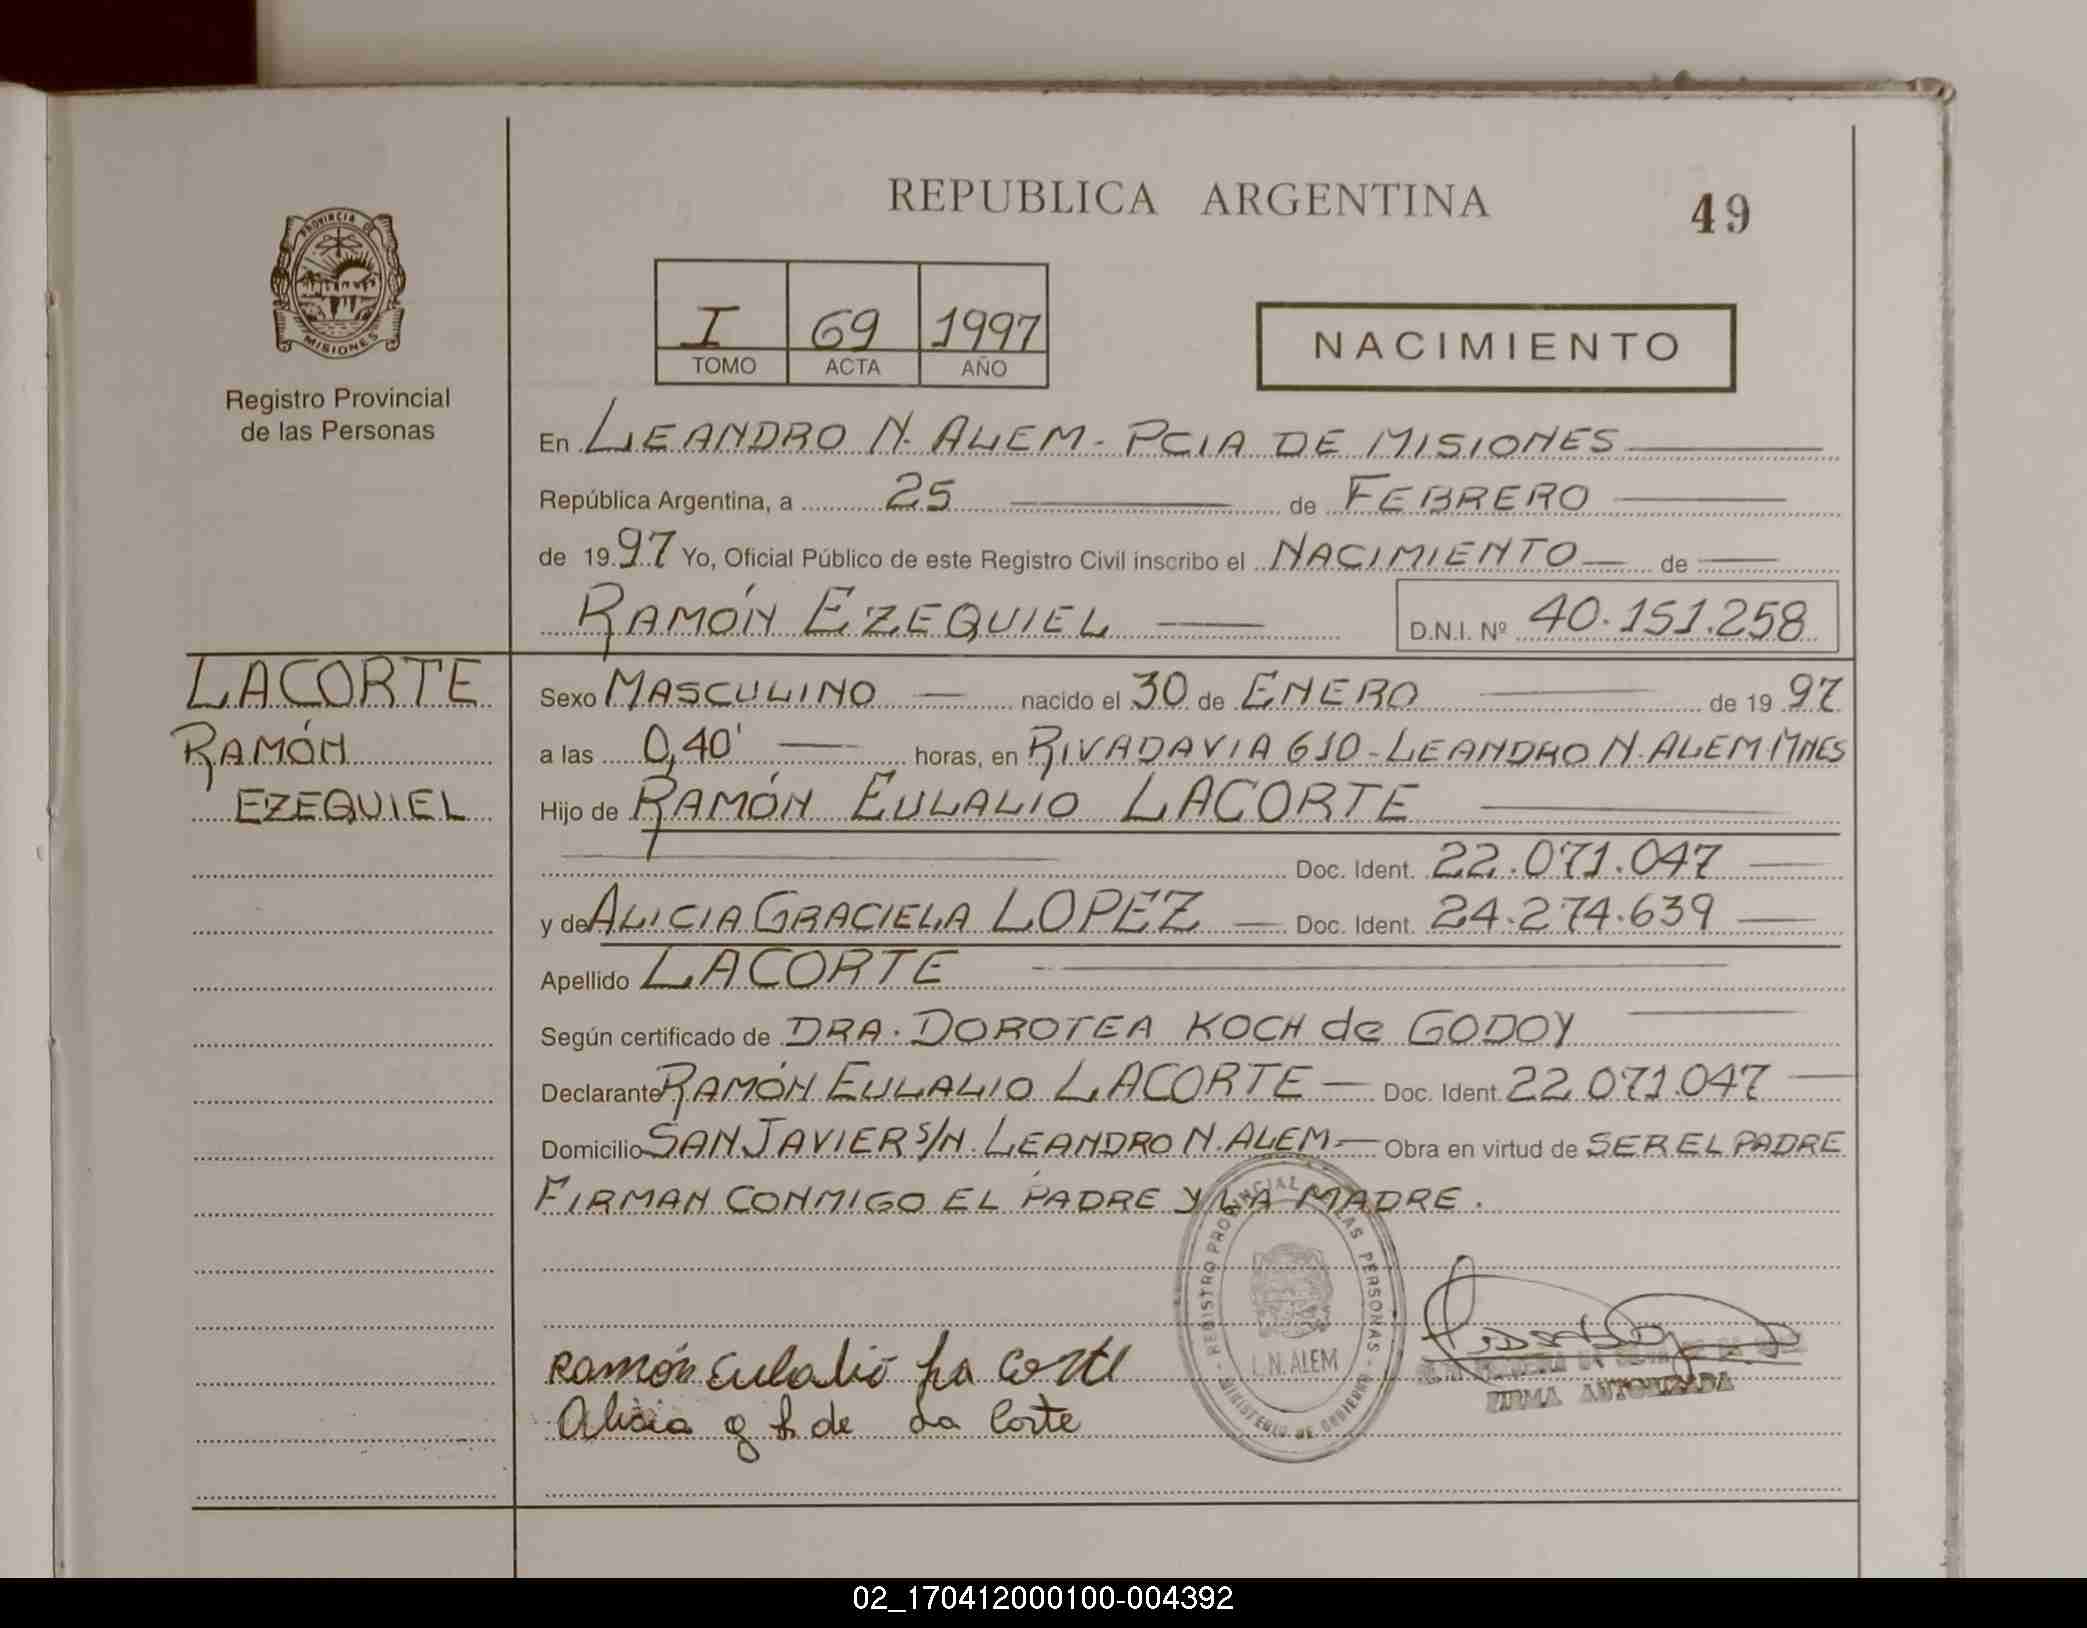 REPUBLICA ARGENTINA
49
PROVINCIA DE
MISIONES
Registro Provincial
de las Personas
I 69 1997
TOMO ACTA AÑO
NACIMIENTO
En LEANDRO N. ALEM - PCIA DE MISIONES
República Argentina, a 25 de FEBRERO
de 1997 Yo, Oficial Público de este Registro Civil inscribo el NACIMIENTO de
RAMÓN EZEQUIEL D.N.I. Nº 40.151.258
LACORTE
RAMÓN
EZEQUIEL
Sexo MASCULINO nacido el 30 de ENERO de 1997
a las 0,40' horas, en RIVADAVIA 610 - LEANDRO N. ALEM MNES
Hijo de RAMÓN EULALIO LACORTE
Doc. Ident. 22.071.047
y de ALICIA GRACIELA LOPEZ Doc. Ident. 24.274.639
Apellido LACORTE
Según certificado de DRA. DOROTEA KOCH de GODOY
Declarante RAMÓN EULALIO LACORTE Doc. Ident. 22.071.047
Domicilio SAN JAVIER S/N. LEANDRO N. ALEM Obra en virtud de SER EL PADRE
FIRMAN CONMIGO EL PADRE Y LA MADRE.
REGISTRO PROVINCIAL DE LAS PERSONAS
L.N. ALEM
MINISTERIO DE GOBIERNO
Ramón Eulalio La Corte
Alicia g L de La Corte
FIRMA AUTORIZADA
02_170412000100-004392